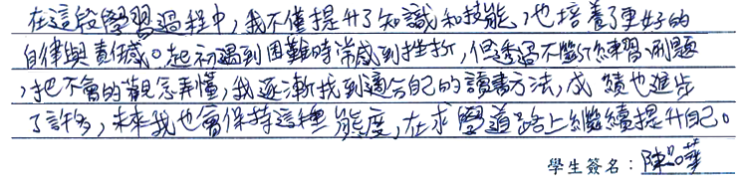 在這段學習過程中,我不僅提升了知識和技能,也培養了更好的
自律與責任感。起初遇到困難時常感到挫折,但透過不斷練習例題
,把不會的觀念弄懂,我逐漸找到適合自己的讀書方法,成績也進步
了許多,未來我也會保持這種態度,在求學道路上繼續提升自己。
學生簽名:陳 華